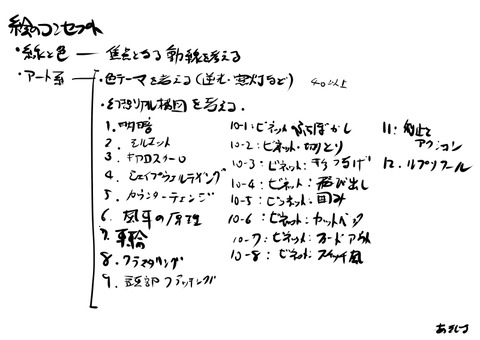 絵のコンセプト
・線と色 ― 焦点となる動線を考える
・アート系
・色テーマを考える(逆光・窓灯など) 40以上
・イマジナリアル構図を考える.
1. 明暗
2. シルエット
3. キアロスクーロ
4. シェイプウェルディング
5. カウンターチェンジ
6. 気斗の原理
7. 車輪
8. クラスタリング
9. 頭部フラッキング
10-1: ビネット ふちぼかし
10-2: ビネット・切とり
10-3: ビネット:
10-4: ビネット: 飛び出し
10-5: ビネット: 囲み
10-6: ビネット: カットページ
10-7: ビネット:
10-8: ビネット: スイッチ風
11: 静止とアクション
12. ルプリソール